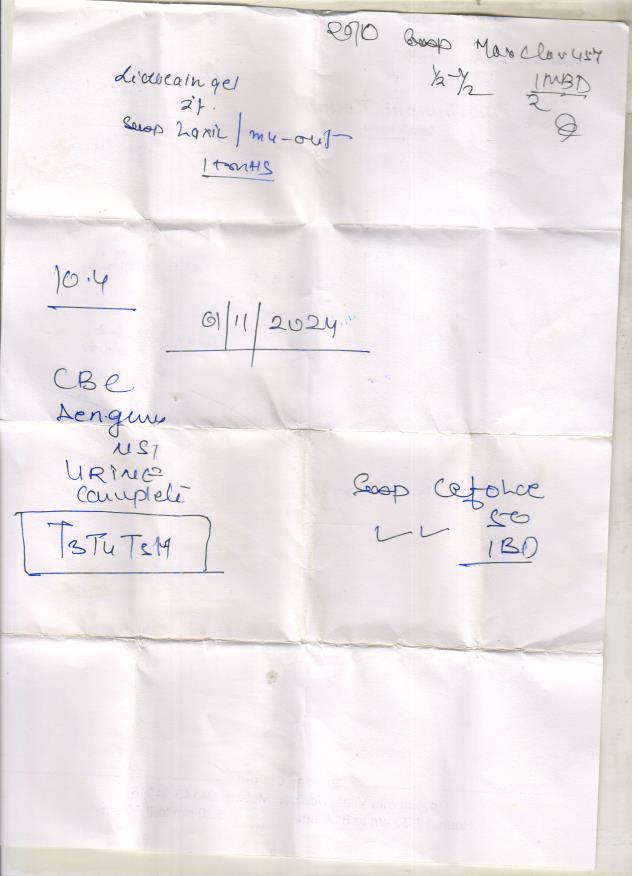 Syrup Moxclav 457
1/2-1/2 1MBD
2
Lidocain gel
2%
Syrup Laxil / mu-out
1 tsn HS
10.4
01/11/2024
CBC
Dengue
NS1
URINE
Complete
T3T4 TSH
Syrup Ceforce
50
1BD